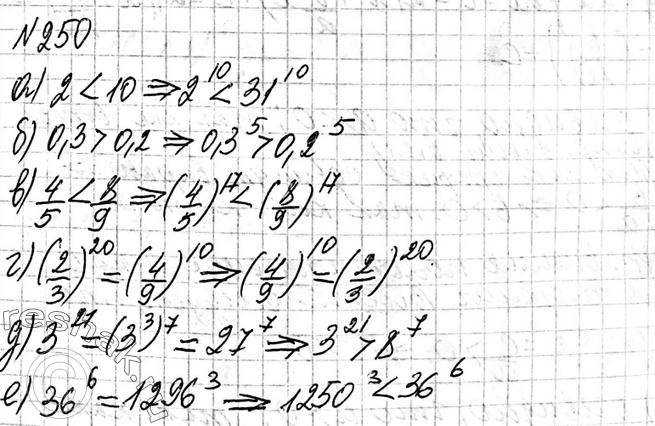 №250
а) 2 < 10 ⇒ 2^10 < 31^10
б) 0,3 > 0,2 ⇒ 0,3^5 > 0,2^5
в) 4/5 < 8/9 ⇒ (4/5)^17 < (8/9)^17
г) (2/3)^20 = (4/9)^10 ⇒ (4/9)^10 = (2/3)^20.
д) 3^21 = (3^3)^7 = 27^7 ⇒ 3^21 > 8^7
е) 36^6 = 1296^3 ⇒ 1250^3 < 36^6